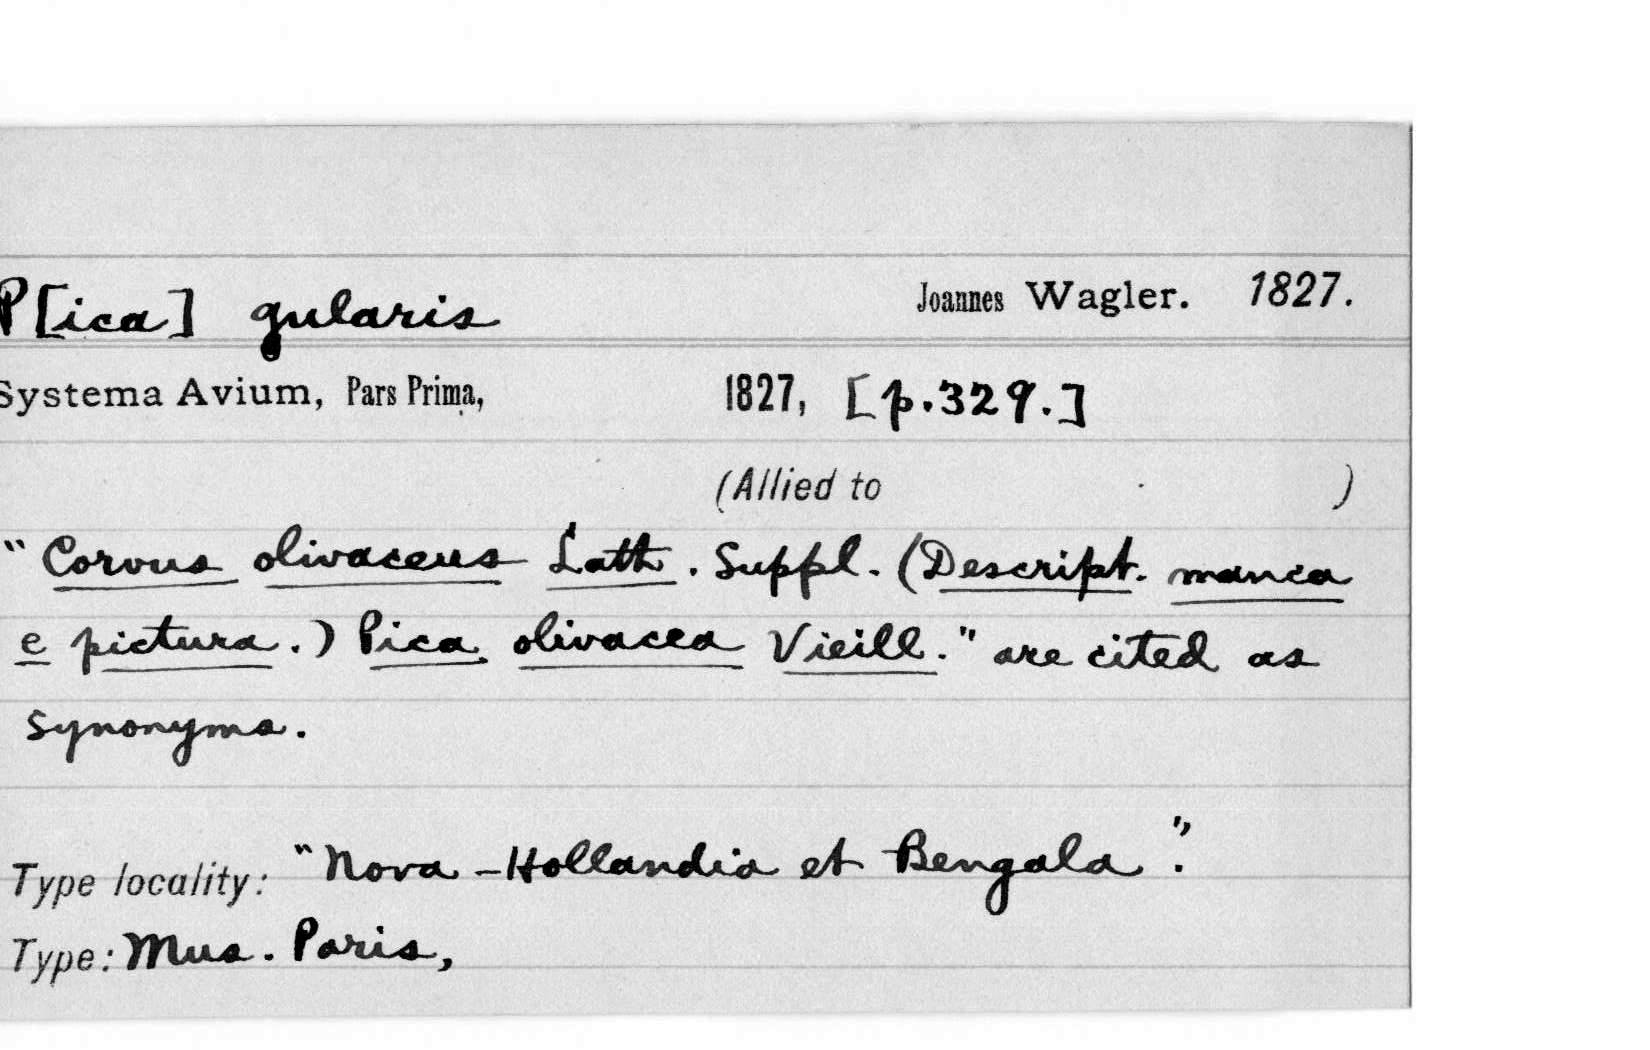 P[ica] gularis Joannes Wagler. 1827.
Systema Avium, Pars Prima, 1827, [p.329.]
(Allied to )
"Corvus olivaceus Lath. Suppl. (Descript. manca
e pictura.) Pica olivacea Vieill." are cited as
synonyms.
Type locality: "Nova-Hollandia et Bengala".
Type: Mus. Paris,